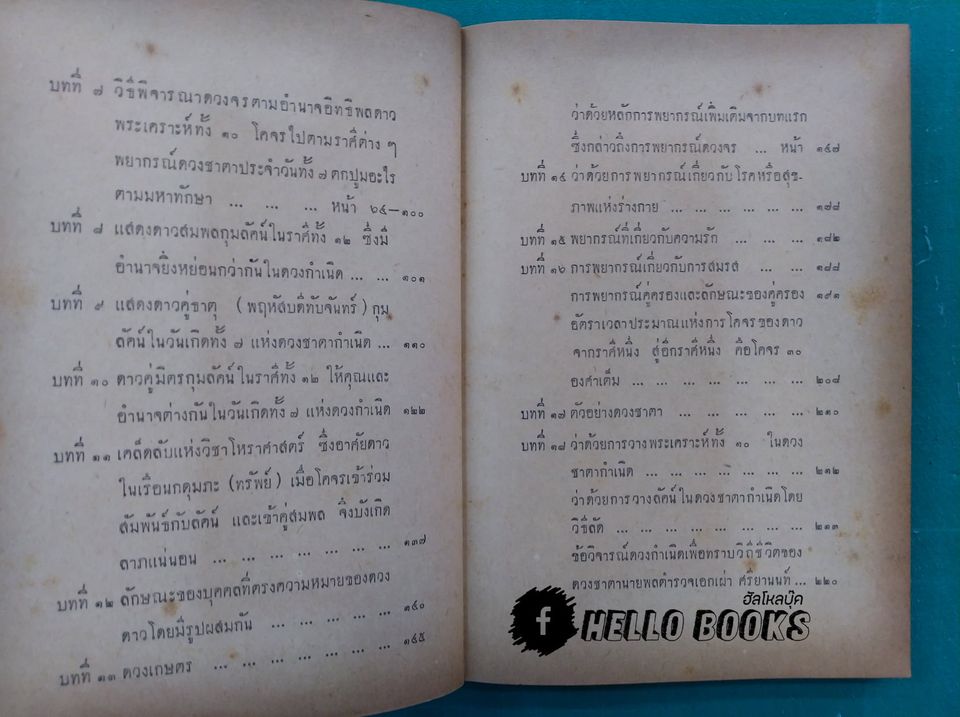 บทที่ ๗ วิธีพิจารณาดวงจรตามอำนาจอิทธิพลดาว
พระเคราะห์ทั้ง ๑๐ โคจรไปตามราศีต่าง ๆ
พยากรณ์ดวงชาตาประจำวันทั้ง ๗ ตกปูมอะไร
ตามมหาทักษา ... ... ... หน้า ๖๔—๑๐๐
บทที่ ๘ แสดงดาวสมพลกุมลัคน์ในราศีทั้ง ๑๒ ซึ่งมี
อำนาจยิ่งหย่อนกว่ากันในดวงกำเนิด ... ... ๑๐๑
บทที่ ๙ แสดงดาวคู่ธาตุ (พฤหัสบดีทับจันทร์) กุม
ลัคน์ในวันเกิดทั้ง ๗ แห่งดวงชาตากำเนิด ... ๑๑๐
บทที่ ๑๐ ดาวคู่มิตรกุมลัคน์ในราศีทั้ง ๑๒ ให้คุณและ
อำนาจต่างกันในวันเกิดทั้ง ๗ แห่งดวงกำเนิด ๑๒๒
บทที่ ๑๑ เคล็ดลับแห่งวิชาโหราศาสตร์ ซึ่งอาศัยดาว
ในเรือนกดุมภะ (ทรัพย์) เมื่อโคจรเข้าร่วม
สัมพันธ์กับลัคน์ และเข้าคู่สมพล จึงบังเกิด
ลาภแน่นอน ... ... ... ... ... ... ... ๑๓๗
บทที่ ๑๒ ลักษณะของบุคคลที่ตรงความหมายของดวง
ดาวโดยมีรูปผสมกัน ... ... ... ... ... ๑๔๐
บทที่ ๑๓ ดวงเกษตร ... ... ... ... ... ... ๑๔๕
ว่าด้วยหลักการพยากรณ์เพิ่มเติมจากบทแรก
ซึ่งกล่าวถึงการพยากรณ์ดวงจร ... หน้า ๑๔๗
บทที่ ๑๔ ว่าด้วยการพยากรณ์เกี่ยวกับโรคหรือสุข-
ภาพแห่งร่างกาย ... ... ... ... ... ... ๑๗๘
บทที่ ๑๕ พยากรณ์ที่เกี่ยวกับความรัก ... ... ... ๑๘๒
บทที่ ๑๖ การพยากรณ์เกี่ยวกับการสมรส ... ... ๑๘๘
การพยากรณ์คู่ครองและลักษณะของคู่ครอง ๑๙๑
อัตราเวลาประมาณแห่งการโคจรของดาว
จากราศีหนึ่ง สู่อีกราศีหนึ่ง คือโคจร ๓๐
องศาเต็ม ... ... ... ... ... ... ... ๒๐๘
บทที่ ๑๗ ตัวอย่างดวงชาตา ... ... ... ... ... ๒๑๐
บทที่ ๑๘ ว่าด้วยการวางพระเคราะห์ทั้ง ๑๐ ในดวง
ชาตากำเนิด ... ... ... ... ... ... ... ๒๑๒
ว่าด้วยการวางลัคน์ในดวงชาตากำเนิดโดย
วิธีลัด ... ... ... ... ... ... ... ... ๒๑๓
ข้อวิจารณ์ดวงกำเนิดเพื่อทราบวิถีชีวิตของ
ดวงชาตานายพลตำรวจเอกเผ่า ศรียานนท์ ... ๒๒๐
ฮัลโหลบุ๊ค
f HELLO BOOKS